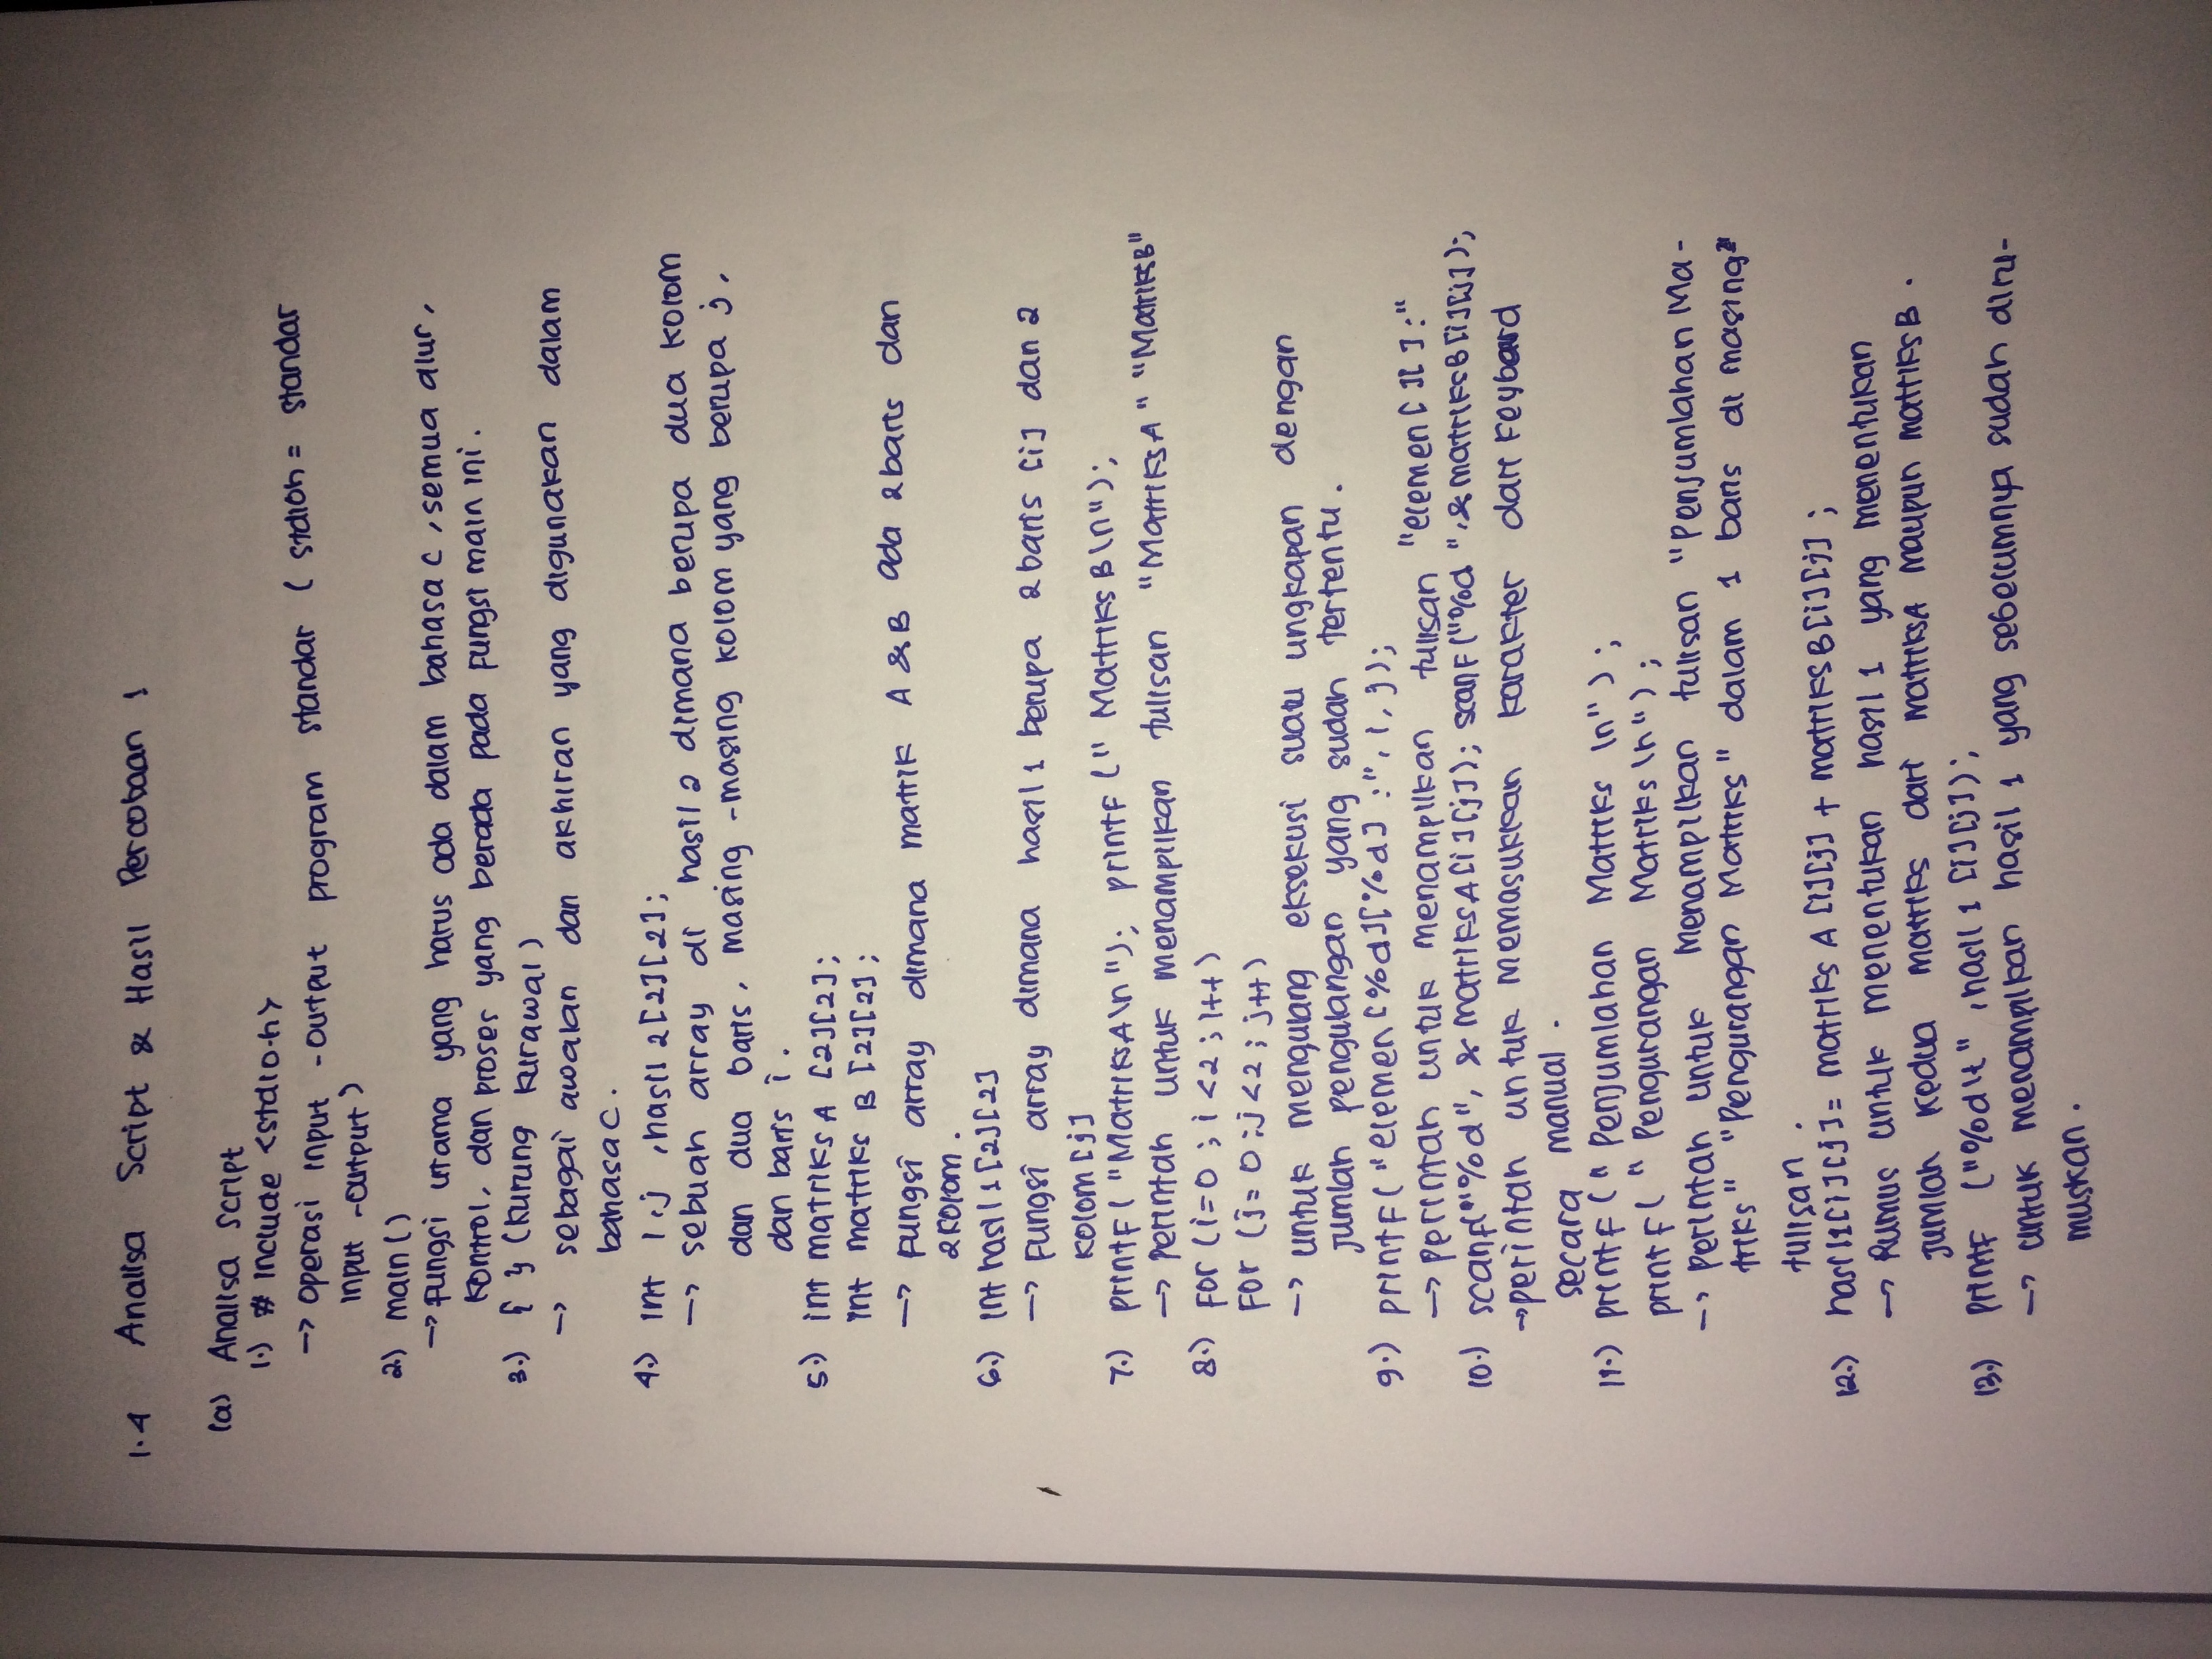 1.4 Analisa Script & Hasil Percobaan 1
(a) Analisa Script
1.) # include <stdio.h>
→ operasi input -output program standar ( stdioh = standar
input -output )
2.) main()
→ Fungsi utama yang harus ada dalam bahasa C, semua alur,
kontrol, dan proses yang berada pada fungsi main ini.
3.) { } (kurung kurawal)
→ sebagai awalan dan akhiran yang digunakan dalam
bahasa C.
4.) int i,j ,hasil 2[2][2];
→ sebuah array di hasil 2 dimana berupa dua kolom
dan dua baris, masing -masing kolom yang berupa j,
dan baris i.
5.) int matriks A [2][2];
int matriks B [2][2];
→ Fungsi array dimana matrik A & B ada 2 baris dan
2 kolom.
6.) int hasil 1 [2][2]
→ Fungsi array dimana hasil 1 berupa 2 baris [i] dan 2
kolom [j]
7.) printf("Matriks A\n"); printf (" Matriks B\n");
→ perintah untuk menampilkan tulisan "Matriks A" "Matriks B"
8.) for (i=0 ; i<2 ; i++)
for (j=0 ; j<2 ; j++)
→ untuk mengulang eksekusi suatu ungkapan dengan
jumlah pengulangan yang sudah tertentu.
9.) printf("elemen[%d][%d] :", i, j);
→ perintah untuk menampilkan tulisan "elemen[ ][ ] :"
10.) scanf("%d", & Matriks A[i][j]); scanf("%d", & matriks B[i][j]);
→ perintah untuk memasukkan karakter dari keyboard
secara manual.
11.) printf (" Penjumlahan Matriks \n");
printf (" Pengurangan Matriks \n");
→ Perintah untuk Menampilkan tulisan "Penjumlahan Ma-
triks" "Pengurangan Matriks" dalam 1 baris di masing²
tulisan.
12.) hasil1[i][j] = matriks A [i][j] + matriks B[i][j];
→ Rumus untuk menentukan hasil 1 yang menentukan
jumlah kedua matriks dari matriks A maupun matriks B.
13.) printf ("%d\t", hasil 1 [i][j]);
→ untuk menampilkan hasil 1 yang sebelumnya sudah diru-
muskan.